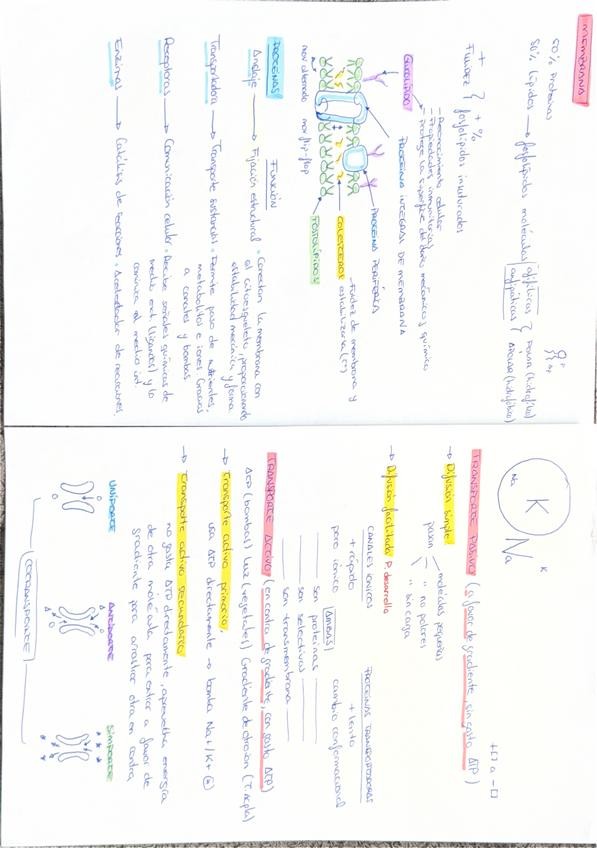 MEMBRANA
50% Proteínas
50% lípidos → fosfolípidos moléculas anfifílicas } POLAR (hidrófilo)
anfipáticas } APOLAR (hidrófobo)
+ FLUIDEZ } + % fosfolípidos insaturados
- Reconocimiento celular
- Propiedades inmunitarias
- Protege la superficie de daño mecánico y químico
GLUCOLÍPIDO
PROTEÍNA INTEGRAL DE MEMBRANA
PROTEÍNA PERIFÉRICA
COLESTEROL
- Fluidez de membrana y estabilizaría
FOSFOLÍPIDOS
mov flip-flop
PROTEÍNAS
FUNCIÓN
Anclaje → Fijación estructural • Conectan la membrana con
el citoesqueleto, proporcionando
estabilidad mecánica y forma
Transportadora → Transporte sustancias • Permite paso de nutrientes,
metabolitos e iones. Gracias
a canales y bombas
Receptoras → Comunicación celular • Recibe señales químicas de
medio ext (ligandos) y lo
comunica al medio int.
Enzimas → Catálisis de reacciones • Aceleradador de reacciones.
Na
K
Na
K
+[] a -[]
TRANSPORTE PASIVO (a favor de gradiente, sin gasto ATP)
→ Difusión simple
pasan moléculas pequeñas
" no polares
" sin carga
→ Difusión facilitada P. desarrollo
CANALES IÓNICOS
PROTEÍNAS TRANSPORTADORAS
+ rápido
+ lento
poro iónico
cambio conformacional
AMBAS
son proteínas
son selectivas
son transmembrana
TRANSPORTE ACTIVO (en contra de gradiente, con gasto ATP)
ATP (bombas) Luz (vegetales) Gradiente de otro ion (T. acopla)
→ Transporte activo primario.
usa ATP directamente → bomba Na+/K+
→ Transporte activo secundario
no gasta ATP directamente, aprovecha energía
de otra molécula para entrar a favor de
gradiente para arrastrar otra en contra
UNIPORTE
ANTIPORTE
SIMPORTE
COTRANSPORTE